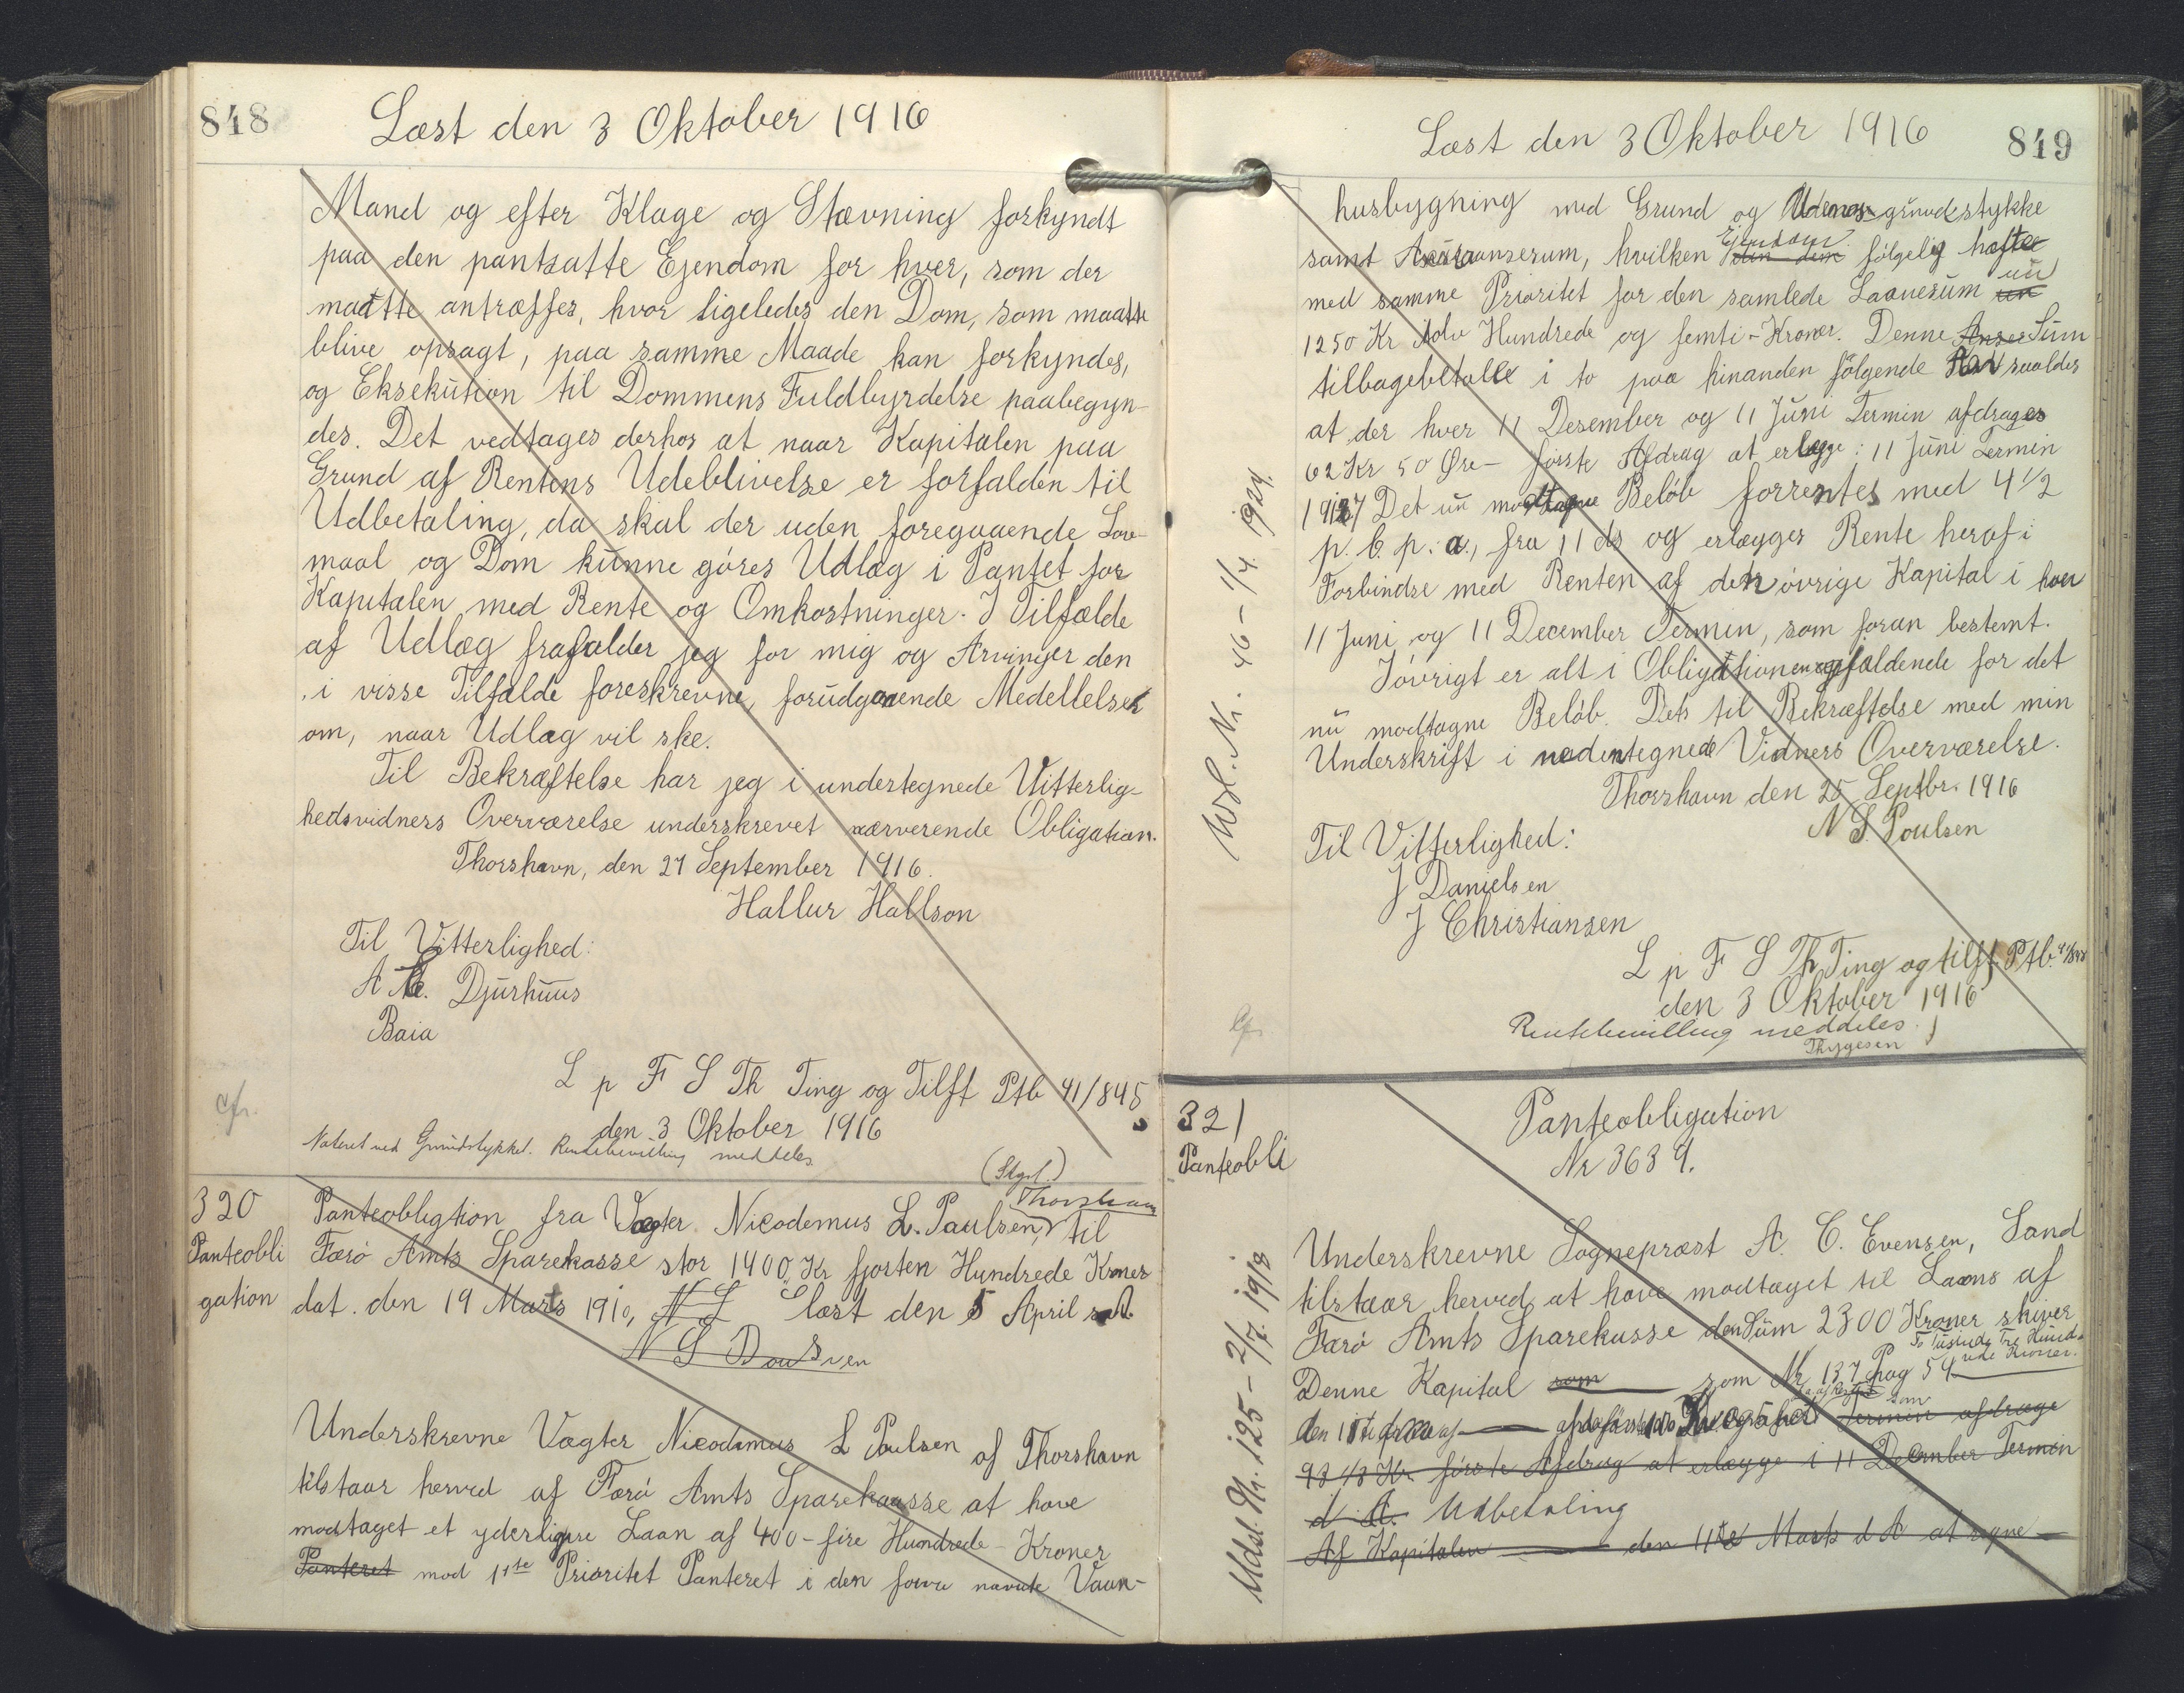 848
Læst den 3 Oktober 1916
Mand og efter Klage og Stævning forkyndt
paa den pantsatte Ejendom for hver, som der
maatte antræffes, hvor ligeledes den Dom, som maatte
blive opsagt, paa samme Maade kan forkyndes,
og Eksekution til Dommens Fuldbyrdelse paabegyn-
des. Det vedtages derhos at naar Kapitalen paa
Grund af Rentens Udeblivelse er forfalden til
Udbetaling, da skal der uden foregaaende Lov-
maal og Dom kunne göres Udlæg i Pantet for
Kapitalen med Rente og Omkostninger. I Tilfælde
af Udlæg frafalder jeg for mig og Arvinger den
i visse Tilfælde foreskrevne, forudgaaende Meddellelse
om, naar Udlæg vil ske.
Til Bekræftelse har jeg i undertegnede Vitterlig-
hedsvidners Overværelse underskrevet nærverende Obligation.
Thorshavn, den 27 September 1916.
Hallur Hallson
Til Vitterlighed:
A C. Djurhuus
Baia
L p F S Th Ting og Tilft Ptb 41/845
den 3 Oktober 1916
cfr.
Noteret ved Grundstykket. Rentebevilling meddeles
320
Panteobli
gation
(Stgl.)
Thorshavn
Panteobligtion fra Vægter Nicodemus L. Paulsen, til
Færö Amts Sparekasse stor 1400 Kr fjorten Hundrede Kroner
dat. den 19 Marts 1910, N L læst den 5 April s. A.
N L Poulsen
Underskrevne Vægter Nicodemus L Poulsen af Thorshavn
tilstaar herved af Færö Amts Sparekasse at have
modtaget et yderligere Laan af 400 - fire Hundrede - Kroner
Panteret mod 1ste Prioritet Panteret i den forre navnte Vaan-
849
Læst den 3 Oktober 1916
husbygning med Grund og grundstykke
samt Assuransesum, hvilken Ejendom følgelig hæfter
med samme Prioritet for den samlede Laanesum nu
1250 Kr tolv Hundrede og femti - Kroner. Denne Sum
tilbagebetalle i to paa hinanden fölgende Aar saaledes
at der hver 11 Desember og 11 Juni Termin afdrages
62 Kr 50 Øre - förste Afdrag at erlægge: 11 Juni Termin
1917 Det nu modtagne Belöb forrentes med 4 1/2
p. C. p. a., fra 11 ds og erlægges Rente heraf i
Forbindse med Renten af den övrige Kapital i hver
11 Juni og 11 December Termin, som foran bestemt.
Iövrigt er alt i Obligationen gjældende for det
nu modtagne Belöb. Dets til Bekræftelse med min
Underskrift i nedentegnede Vidners Overværelse.
Thorshavn den 25 Septbr. 1916
N L Poulsen
Til Vitterlighed:
J Danielsen
J Christiansen
L p F S Th Ting og tilft Ptb. 41/848
den 3 Oktober 1916
Rentebevilling meddeles
Thygesen
cfr.
Udsl. Nr. 46 - 1/4. 1924.
321
Panteobli
Panteobligation
Nr 3639.
Underskrevne Sognepræst A. C. Evensen, Sand
tilstaar herved at have modtaget til Laans af
Færö Amts Sparekasse den Sum 2300 Kroner skiver
To Tusinde Tre Hund-
rede Kroner.
Denne Kapital som som Nr 137 pag 59
Termin afdrage
93 1/3 Kr. förste Afdrag at erlægge i 11 December Termin
d. A. Udbetaling
Af Kapitalen den 11te Marts d A at regne
Udsl. Nr. 125 - 2/7. 1918